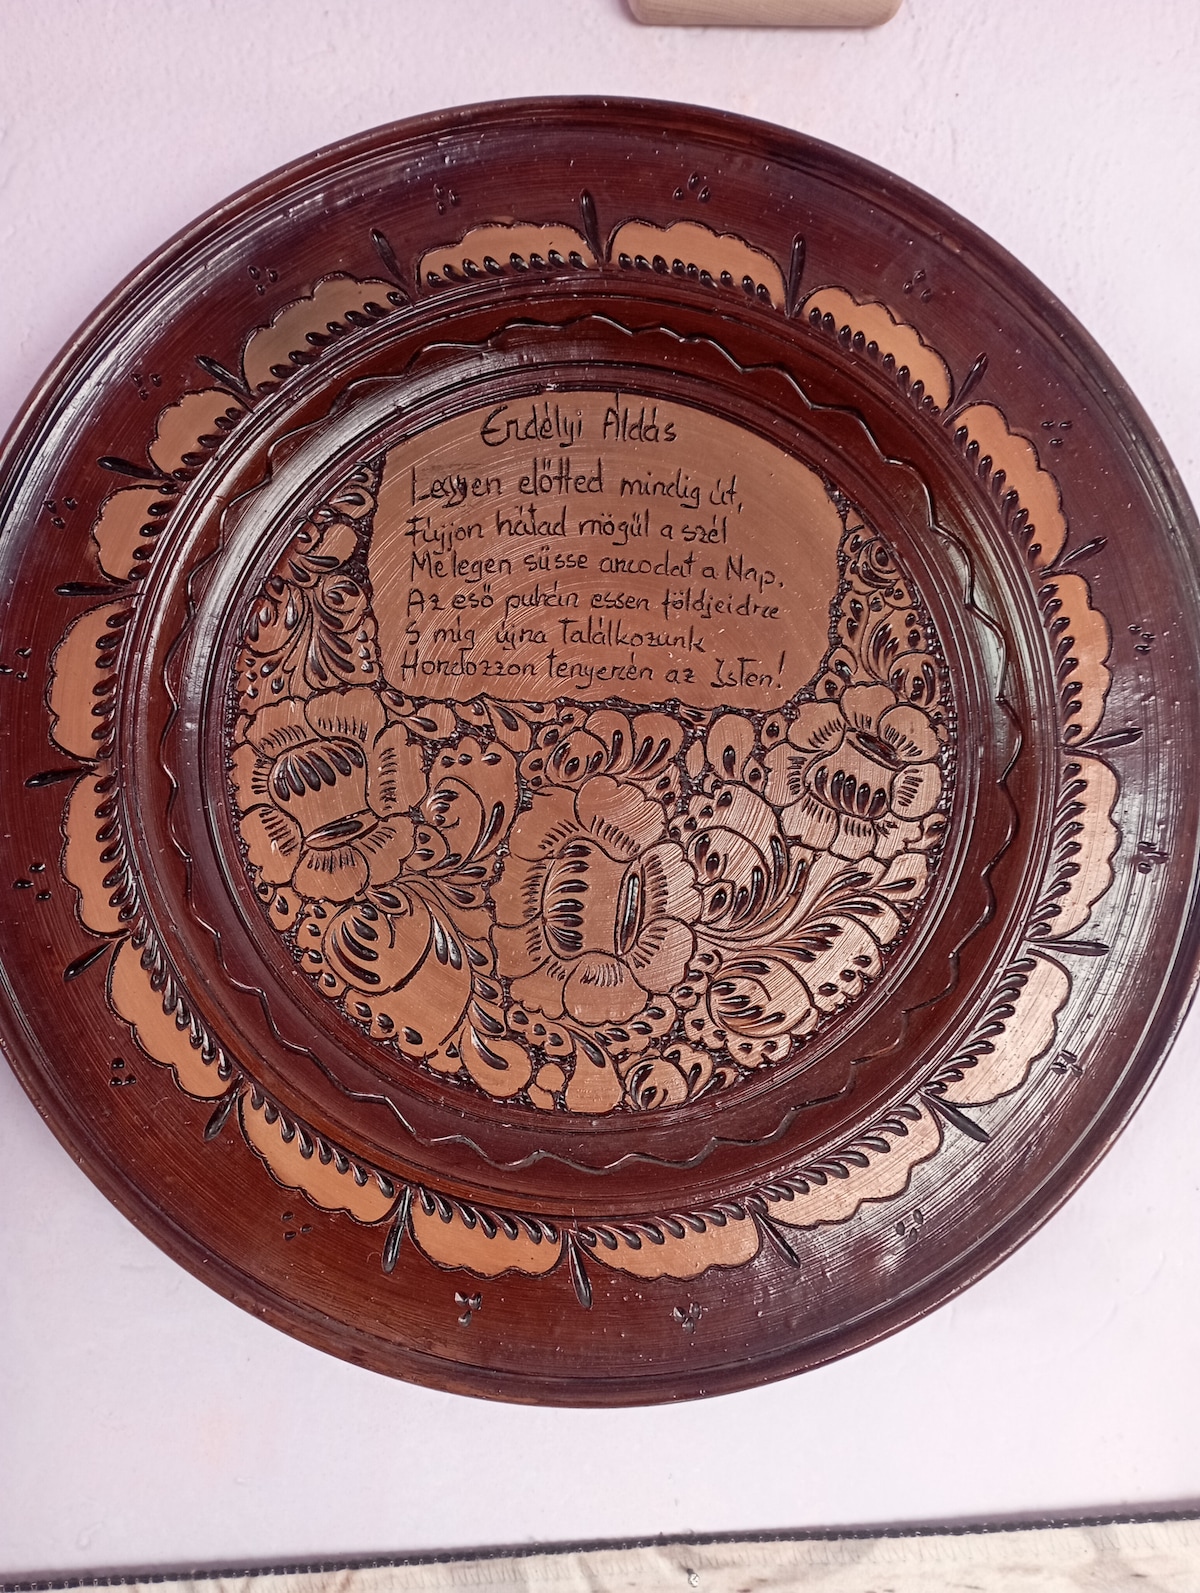 Erdélyi Áldás
Legyen előtted mindig út,
Fújjon hátad mögül a szél
Melegen süsse arcodat a Nap.
Az eső puhán essen földjeidre
S míg újra találkozunk
Hordozzon tenyerén az Isten!